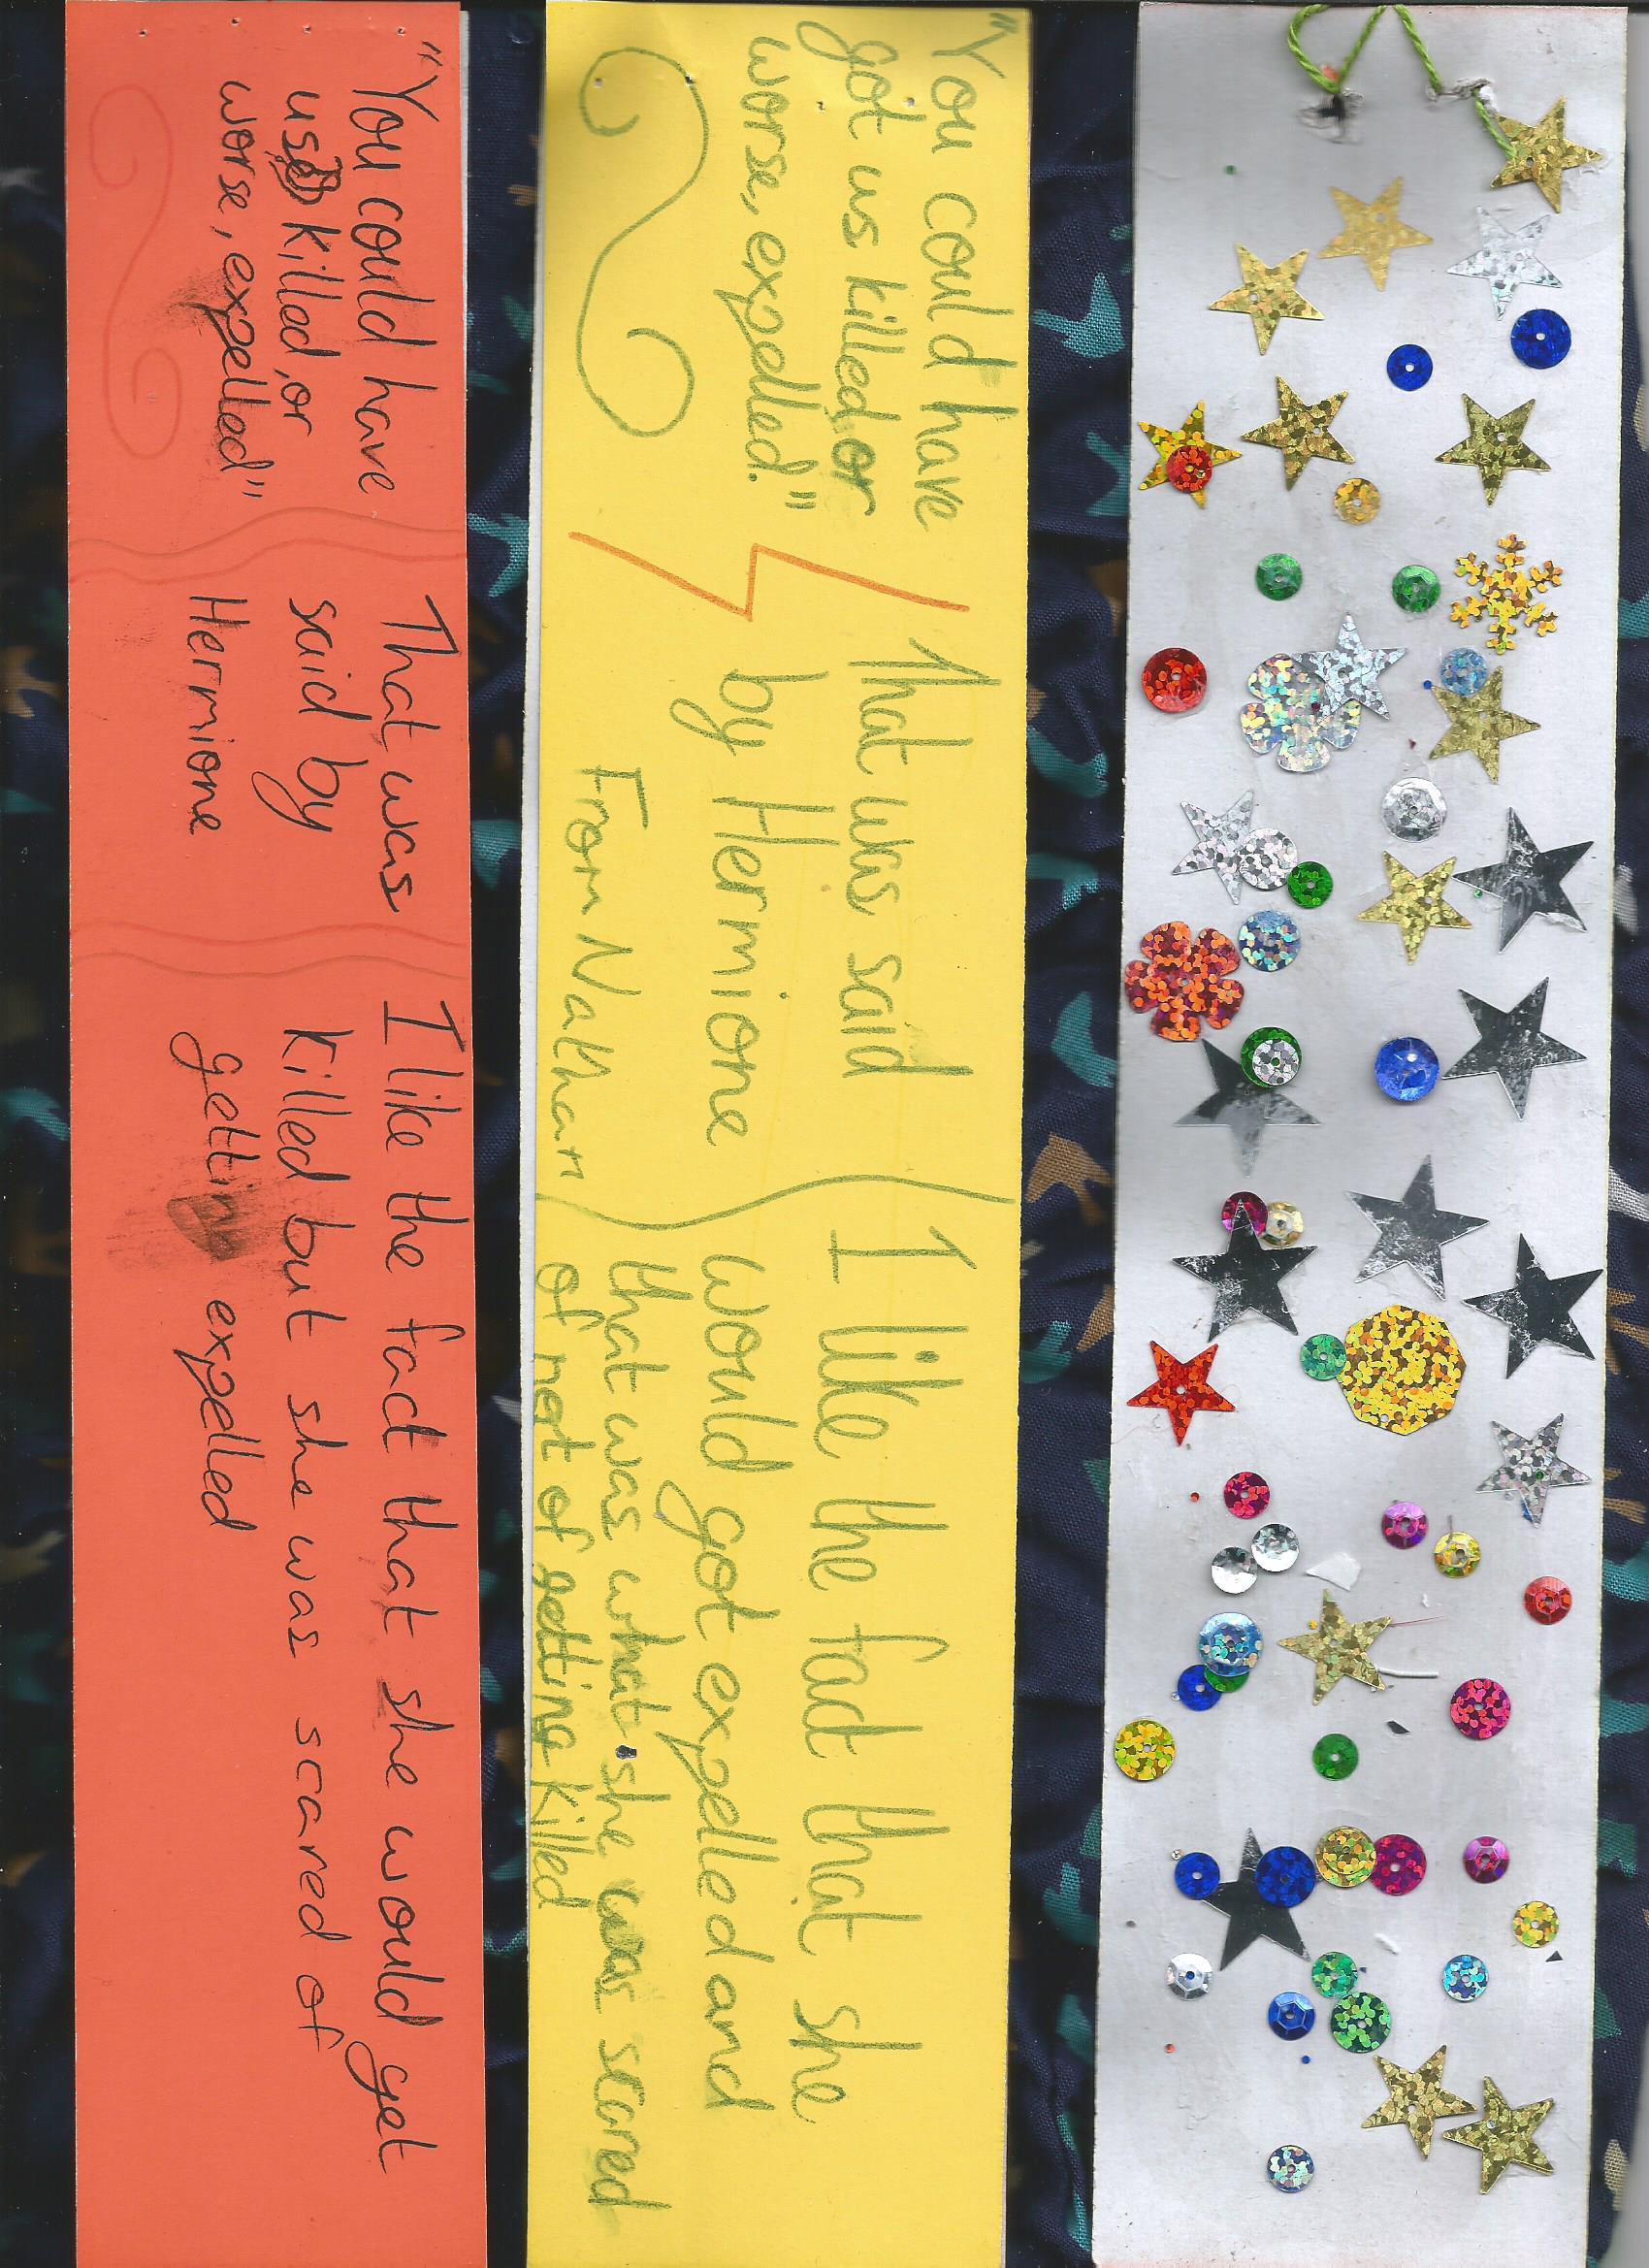 "You could have
got us killed, or
worse, expelled."
That was said
by Hermione
From Nathan
I like the fact that she
would got expelled and
that was what she was scared
of not of getting killed
"You could have
us killed, or
worse, expelled"
That was
said by
Hermione
I like the fact that she would get
killed but she was scared of
getting expelled